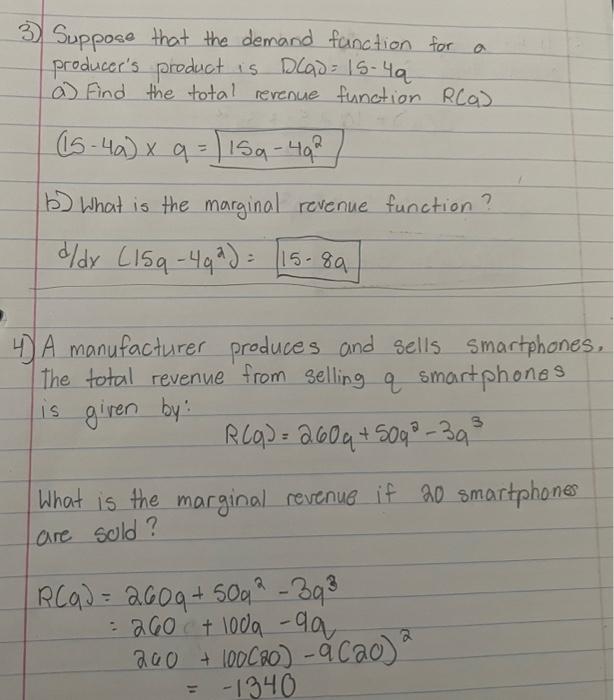 3) Suppose that the demand function for a
producer's product is D(q) = 15-4q
a) Find the total revenue function R(q)
(15-4q) x q = 15q - 4q²
b) What is the marginal revenue function?
d/dx (15q - 4q²) = 15 - 8q
4) A manufacturer produces and sells smartphones.
The total revenue from selling q smartphones
is given by:
R(q) = 260q + 50q² - 3q³
What is the marginal revenue if 20 smartphones
are sold?
R(q) = 260q + 50q² - 3q³
= 260 + 100q - 9q
260 + 100(20) - 9(20)²
= -1340